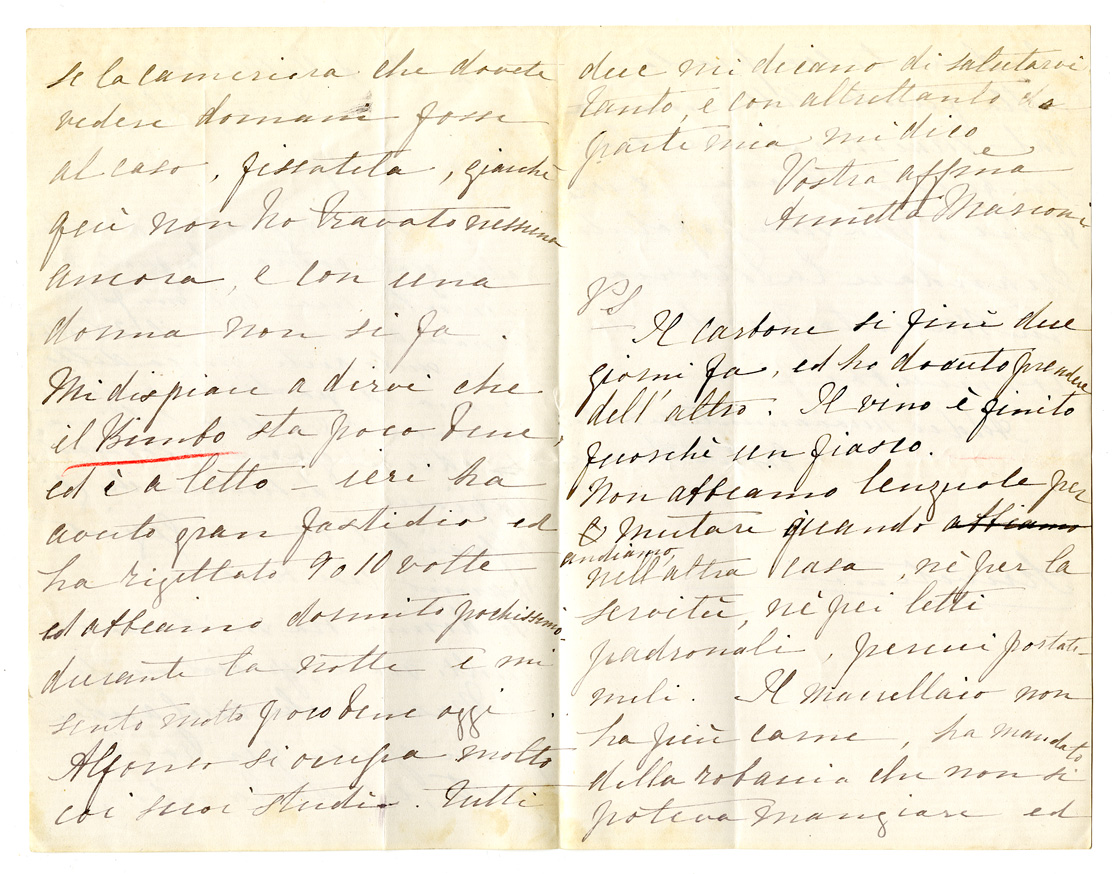 se la cameriera che dovete
vedere domani fosse
al caso, fissatela, giacchè
quì non ho trovato nessuna
ancora, e con una
donna non si fa.
Mi dispiace a dirvi che
il Bimbo sta poco bene,
ed è a letto – ieri ha
avuto gran fastidio ed
ha rigettato 9 o 10 volte
ed abbiamo dormito pochissimo
durante la notte e mi
sento molto poco bene oggi
Alfonso si occupa molto
coi suoi studi. Tutti
due mi dicano di salutarvi
tanto, e con altrettanto da
parte mia mi dico
Vostra affma
Annetta Marconi
PS
Il carbone si finì due
giorni fa, ed ho dovuto prendere
dell'altro. Il vino è finito
fuorchè un fiasco.
Non abbiamo lenzuole per
mutare quando abbiamo
andiamo,
nell'altra casa, nè per la
servitù, nè pei letti
padronali, percui portate-
meli. Il macellaio non
ha più carne, ha mandato
della robaccia che non si
poteva mangiare ed